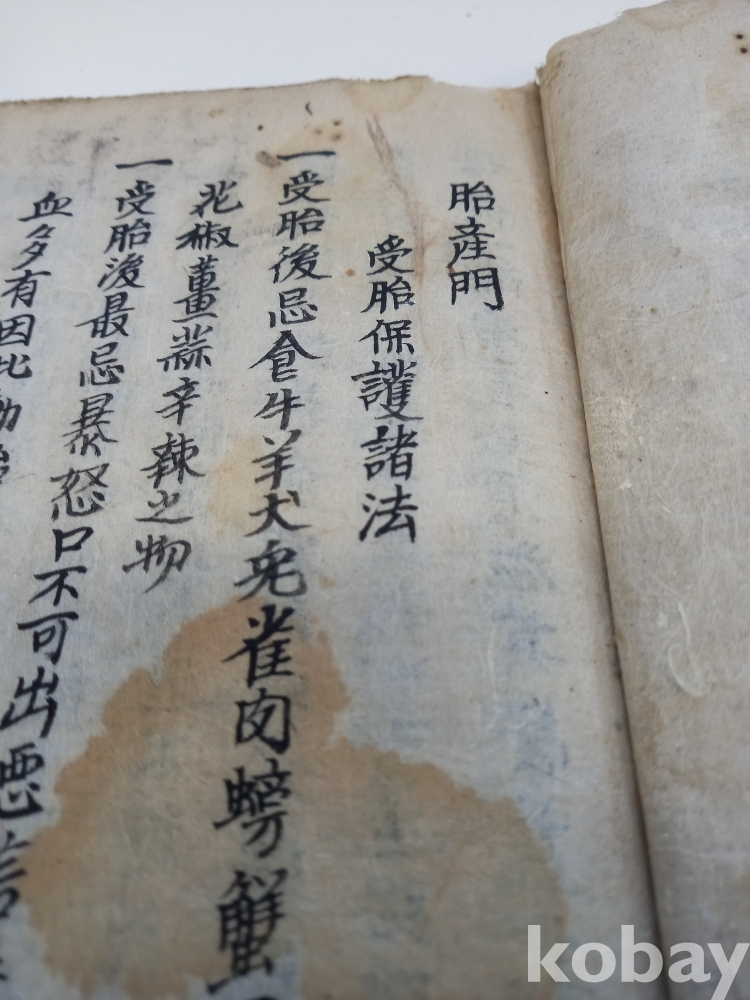 胎産門
受胎保護諸法
一受胎後忌食牛羊犬兎雀肉螃蟹
花椒薑蒜辛辣之物
一受胎後最忌暴怒口不可出悪言
血多有因此動胎
kobay